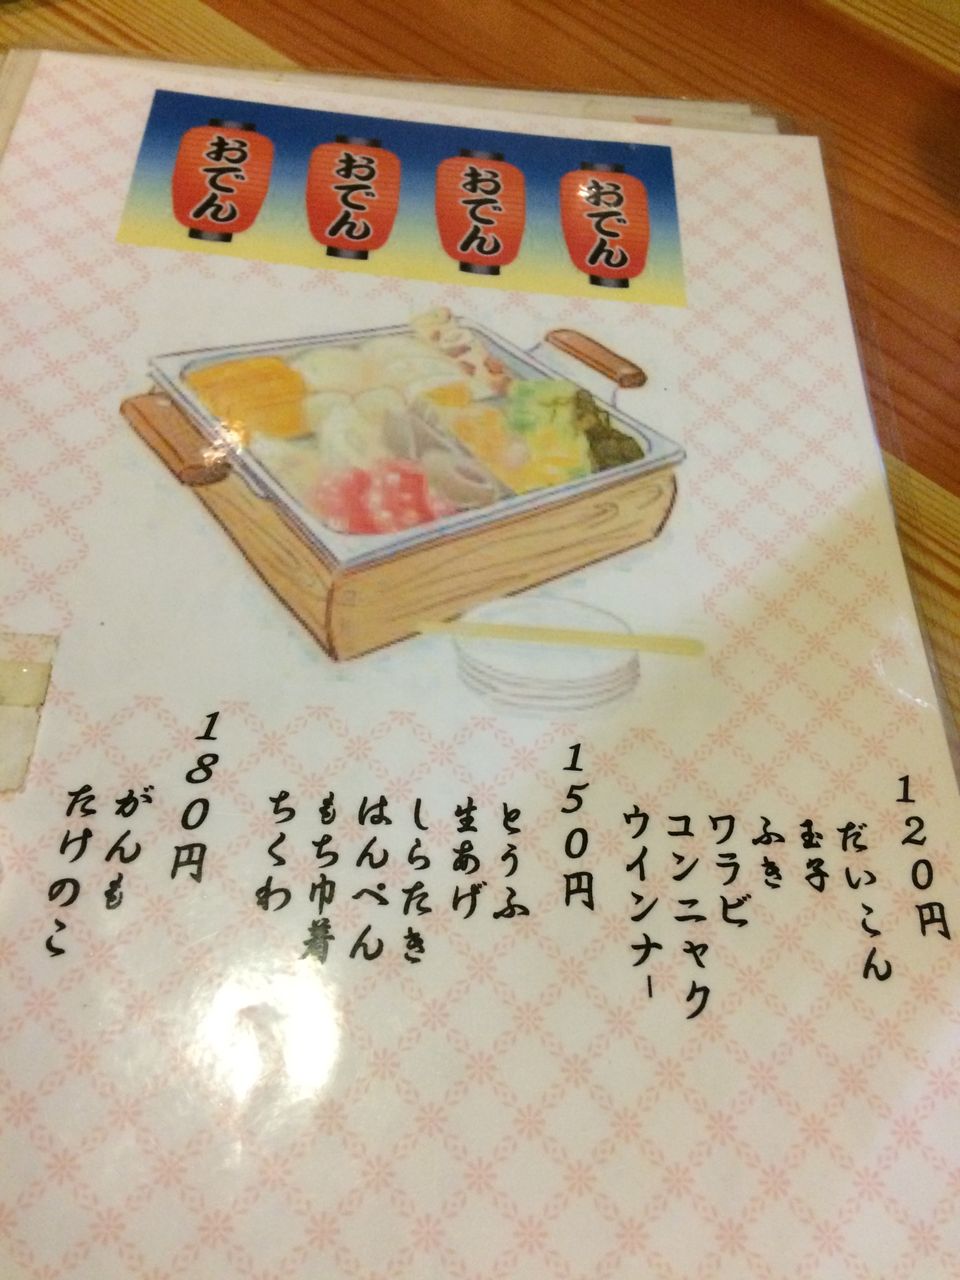 おでん
おでん
おでん
おでん
120円
だいこん
玉子
ふき
ワラビ
コンニャク
ウインナー
150円
とうふ
生あげ
しらたき
はんぺん
もち巾着
ちくわ
180円
がんも
たけのこ